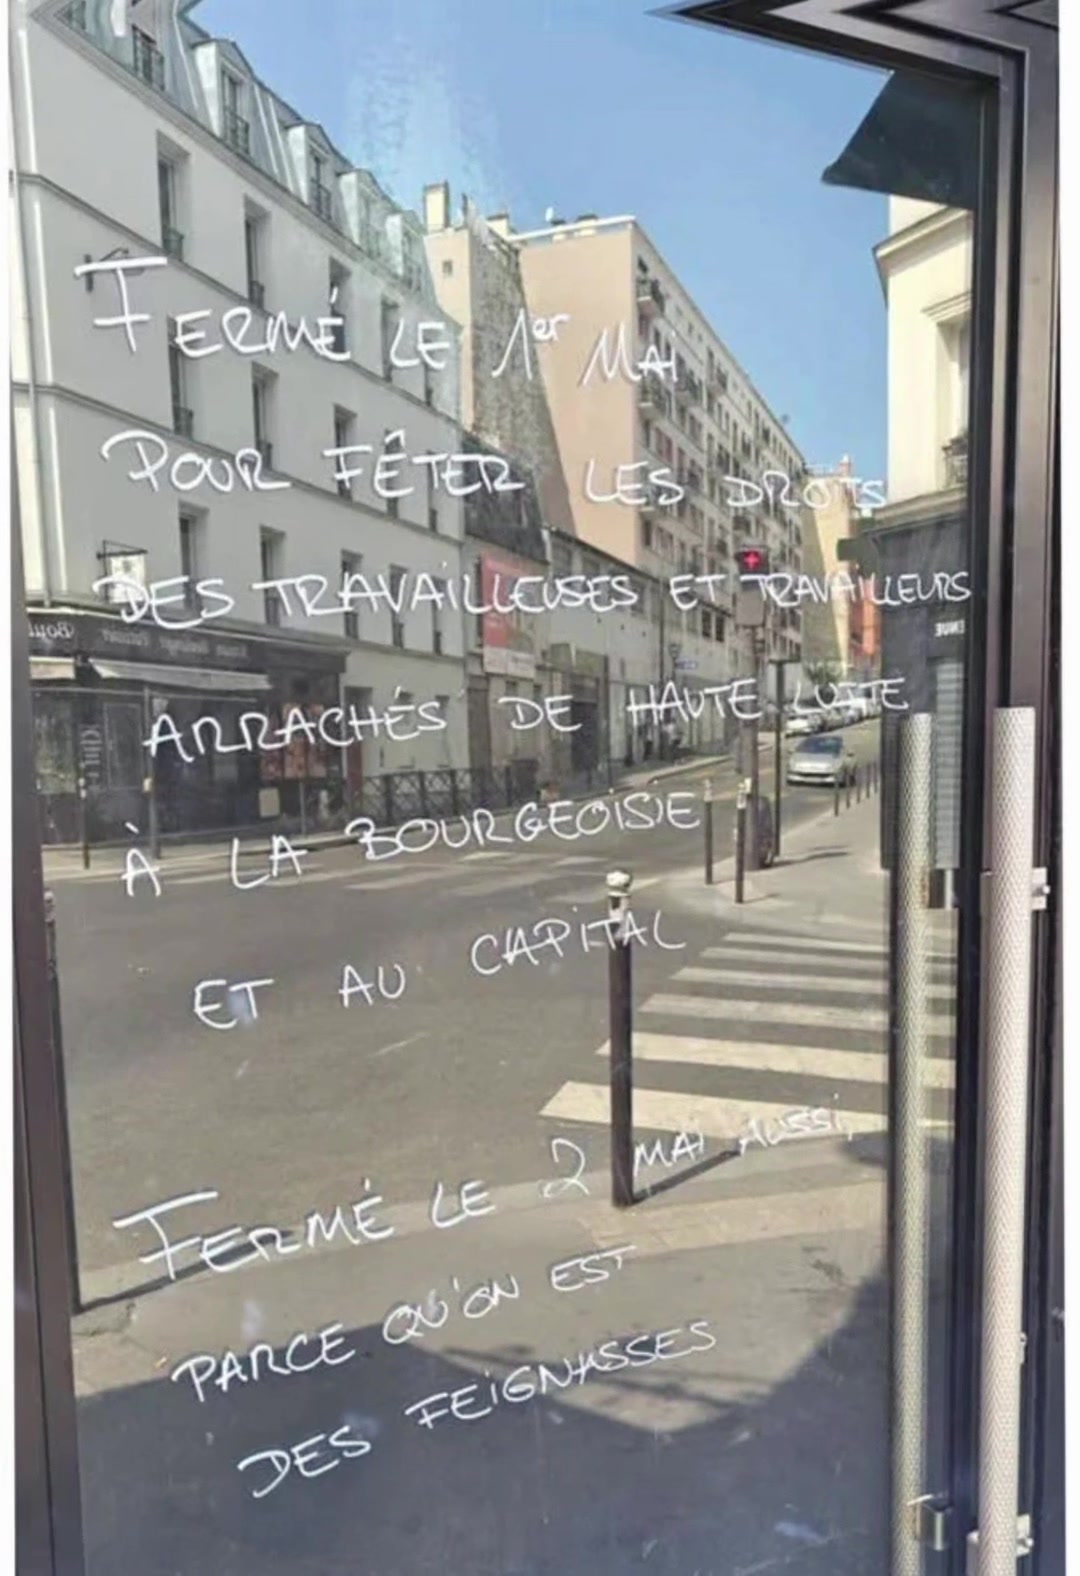 FERMÉ LE 1er MAI
POUR FÊTER LES DROITS
DES TRAVAILLEUSES ET TRAVAILLEURS
ARRACHÉS DE HAUTE LUTTE
À LA BOURGEOISIE
ET AU CAPITAL
FERMÉ LE 2 MAI AUSSI,
PARCE QU'ON EST
DES FEIGNASSES